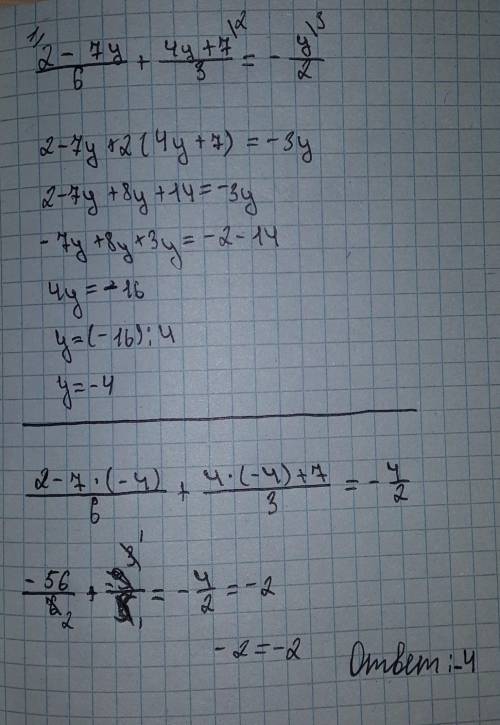 1) (2 - 7y)/6 + (4y + 7)/3 \2 = - y/2 \3
2 - 7y + 2(4y + 7) = -3y
2 - 7y + 8y + 14 = -3y
- 7y + 8y + 3y = -2 - 14
4y = -16
y = (-16) : 4
y = -4
(2 - 7 · (-4))/6 + (4 · (-4) + 7)/3 = - 4/2
- 56/2 + = - 4/2 = -2
-2 = -2
Ответ: -4